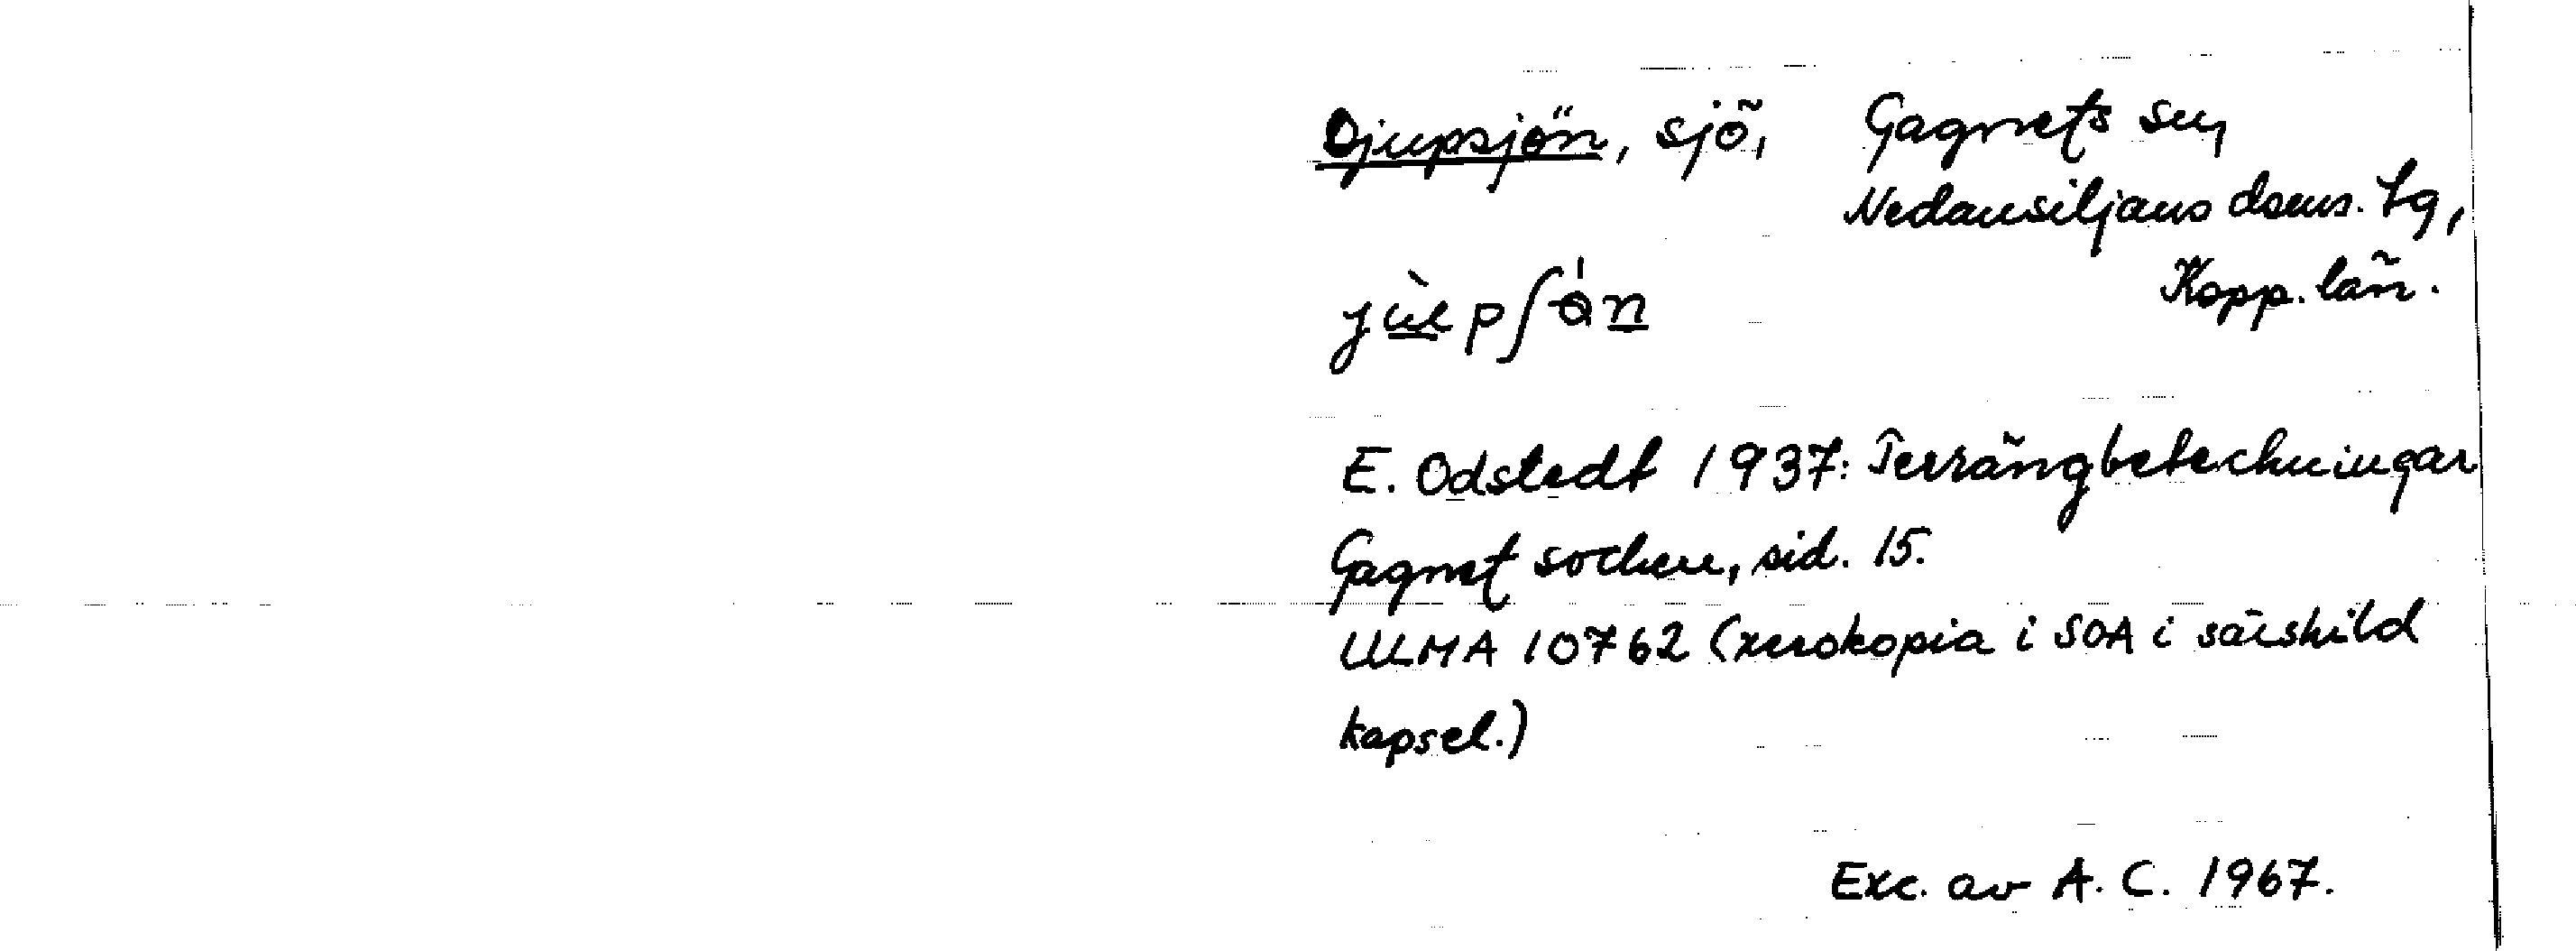 Djupsjön, sjö, Gagnefs sn,
Nedansiljans doms. tg,
Kopp. län.
E. Odstedt 1937: Terrängbeteckningar
Gagnef socken, sid. 15.
ULMA 10762 (xerokopia i SOA i särskild
kapsel.)
Exc. av A. C. 1967.